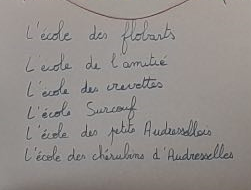 L'école des flobarts
L'école de l'amitié
L'école des crevettes
L'école Surcouf
L'école des petits Audressellois
L'école des chérubins d'Audresselles